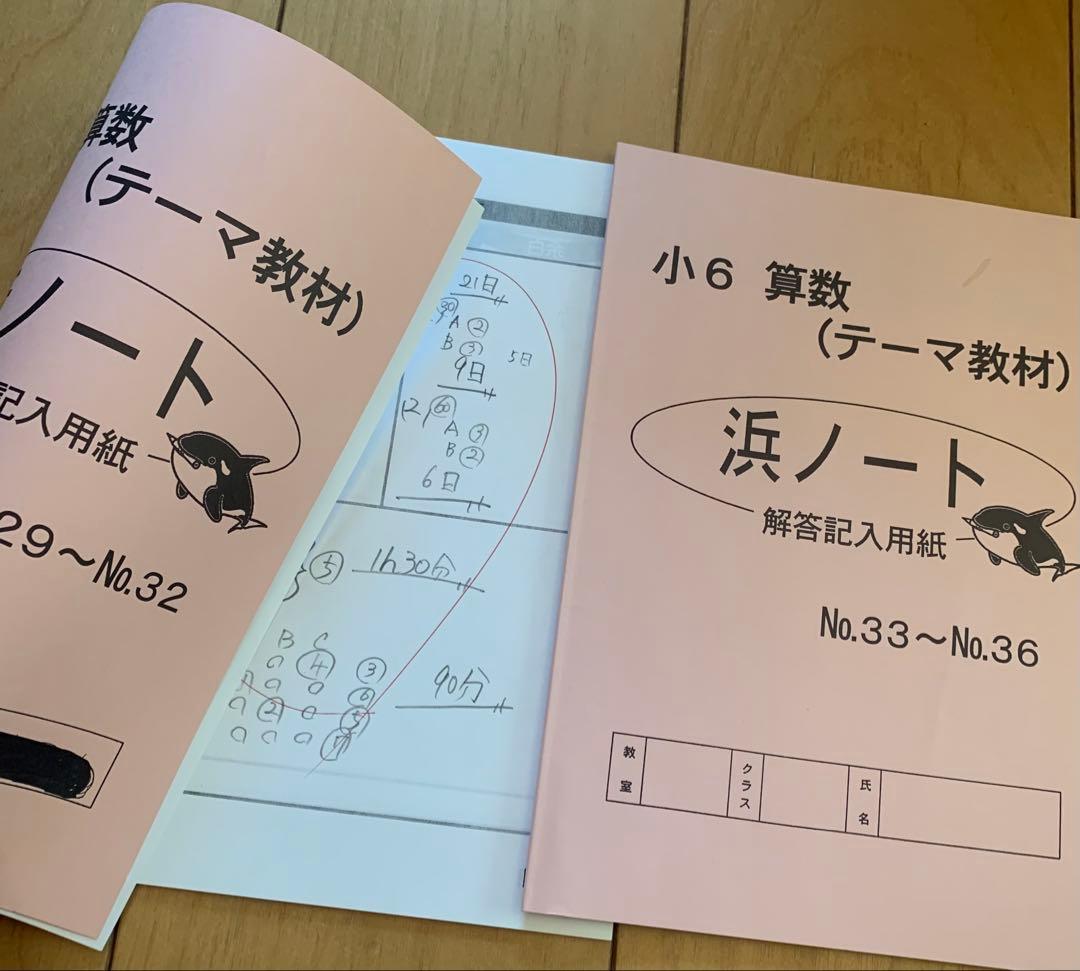 算数
(テーマ教材)
ノート
記入用紙
29〜No.32
21日
㉚
A ②
B ③
5日
9日
(2) 60
A ③
B ②
6日
⑤ 1h30分
B C
④ ③
⑥
② ⑤
90分
小6 算数
(テーマ教材)
浜ノート
解答記入用紙
No.33〜No.36
教室
クラス
氏名